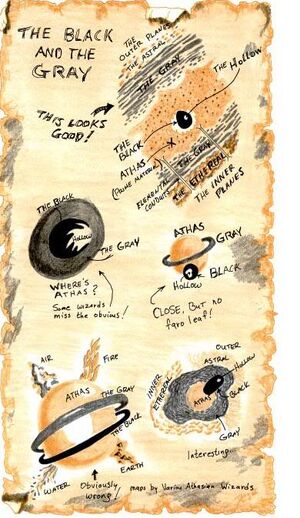 THE BLACK
AND THE
GRAY
THE
OUTER PLANES
THE ASTRAL
THE GRAY
THE HOLLOW
THIS LOOKS
GOOD!
THE
BLACK
ATHAS
(PRIME MATERIAL)
ELEMENTAL
CONDUITS
THE GRAY
THE ETHEREAL
THE INNER
PLANES
THE BLACK
HOLLOW
THE GRAY
WHERE'S
ATHAS?
Some wizards
miss the obvious!
ATHAS
GRAY
BLACK
HOLLOW
CLOSE, BUT NO
faro leaf!
AIR
FIRE
ATHAS
THE GRAY
THE BLACK
WATER
EARTH
Obviously
wrong!
OUTER
ASTRAL
HOLLOW
INNER
ETHEREAL
ATHAS
BLACK
GRAY
Interesting.
maps by Various Athasian Wizards